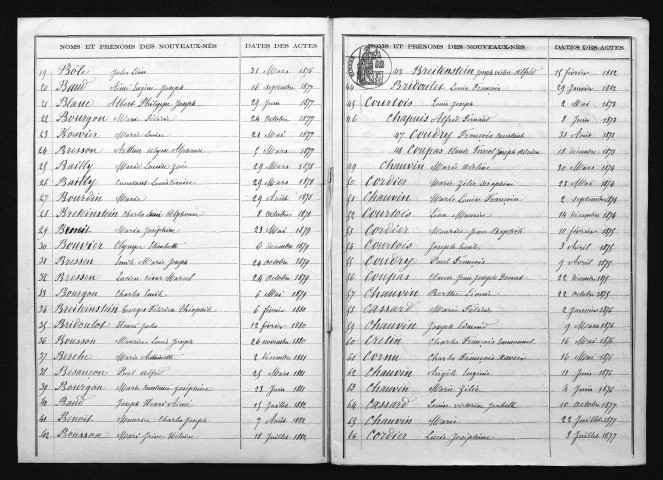 NOMS ET PRÉNOMS DES NOUVEAUX-NÉS DATES DES ACTES
19 Bôle Jules Léon 31 Mars 1876
20 Baud Aimé Eugène Joseph 16 septembre 1877
21 Blanc Albert Philippe Joseph 29 Juin 1877
22 Bourgon Marie 24 octobre 1877
23 Bouvier Marie Louise 21 Mai 1877
24 Bresson Arthur Alphonse 5 Mars 1878
25 Bailly Marie Louise Zoé 29 Mars 1878
26 Bailly Constant 29 Mars 1878
27 Bourdin Marie 29 Août 1878
28 Breitenstein Charles Alphonse 8 octobre 1878
29 Benoit Marie Joséphine 23 Mai 1879
30 Bouvier Olympe Elisabeth 6 décembre 1879
31 Bressen Emile Marie Joseph 24 octobre 1879
32 Bressen Lucien César Marcel 24 octobre 1879
33 Bourgon Charles Emile 6 Mai 1879
34 Breitenstein Georges Théophile 6 février 1880
35 Bridoulot Henri Jules 12 février 1880
36 Bousson Maurice Louis Joseph 26 novembre 1880
37 Berche Marie Antoinette 2 décembre 1881
38 Besançon Paul Alfred 25 Mars 1881
39 Bourgon Marie Joséphine 23 Juin 1881
40 Baud Joseph Henri Aimé 15 Juillet 1882
41 Benoit Maurice Charles Joseph 7 Août 1882
42 Bousson Marie 18 Juillet 1882
NOMS ET PRÉNOMS DES NOUVEAUX-NÉS DATES DES ACTES
43 Breitenstein Joseph Victor Alfred 15 février 1882
44 Bridoulot Louis François 29 Janvier 1882
45 Courtois Louis Joseph 2 Mai 1873
46 Chapuis Alfred Fernand 8 Juin 1873
47 Coudry François Constant 31 Août 1873
48 Coupas Claude Joseph 18 décembre 1873
49 Chauvin Marie 30 Mars 1874
50 Cordier Marie Zélie Séraphine 23 Mai 1874
51 Chauvin Marie Louise 2 septembre 1874
52 Courtois Léon Maurice 14 décembre 1874
53 Cordier Maurice Jean Baptiste 10 février 1875
54 Courtois Joseph Emile 3 Avril 1875
55 Coudry Paul François 9 Avril 1875
56 Coupas Claude Jean Joseph 22 décembre 1875
57 Chauvin Berthe Léonie 22 octobre 1875
58 Cassard Marie 2 Janvier 1876
59 Chauvin Joseph Edmond 9 Mars 1876
60 Cretin Charles François Emmanuel 16 Mai 1876
61 Cornu Charles François Xavier 16 Mai 1876
62 Chauvin Angèle Eugénie 11 Juin 1876
63 Chauvin Marie Zélie 4 Juin 1876
64 Cassard Louise Victorine 10 octobre 1877
65 Chauvin Marie 22 Juillet 1877
66 Cordier Lucie Joséphine 8 Juillet 1877